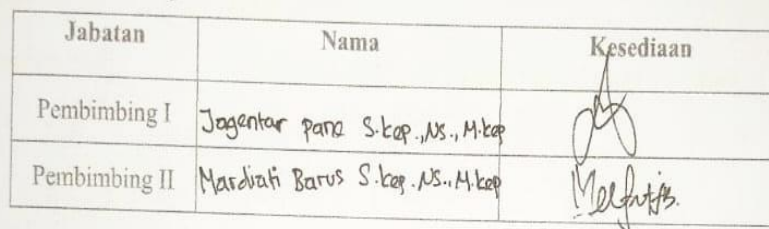 Jabatan Nama Kesediaan
Pembimbing I Jagentar Pane S.kep.,Ns., M.kep
Pembimbing II Mardiati Barus S.kep. Ns., M.kep